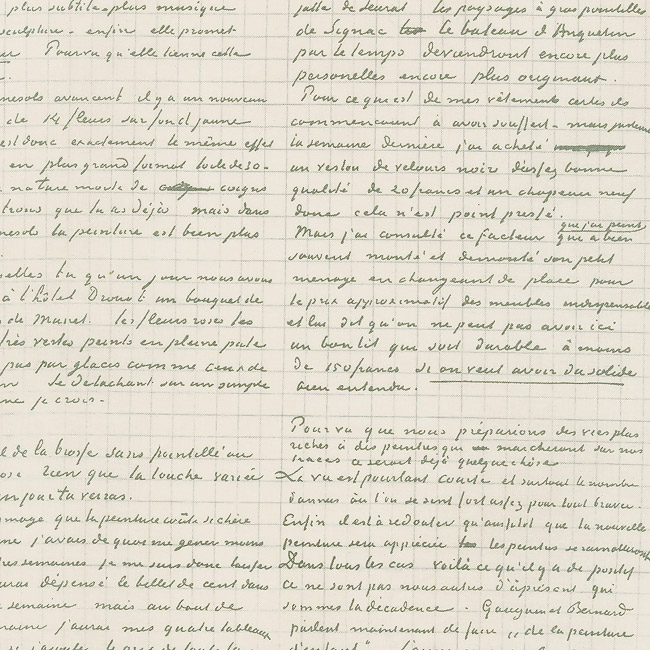 plus subtile – plus musique
sculpture – enfin elle promet
Pourvu qu'elle tienne cette
nesols avancent il y a un nouveau
de 14 fleurs sur fond jaune
est donc exactement le même effet
en plus grand format toile de 30 –
nature morte de coings
que tu as déjà mais dans
nesols la peinture est bien plus
tu qu'un jour nous avons
à l'hôtel Drouot un bouquet de
de Manet. les fleurs roses les
très vertes peints en pleine pate
pas par glacis comme ceux de
Se detachant sur un simple
ne je crois –
l de la brosse sans pointillé ou
Rien que la touche variée
un jour tu verras.
mage que la peinture coûte si chère
me j'avais de quoi me gener moins
res semaines je me suis donc laissé
aurai dépensé le billet de cent dans
semaine mais au bout de
maine j'aurai mes quatre tableaux
jatte de Seurat les paysages à gros pointillés
de Signac le bateau d'Anquetin
par le temps deviendront encore plus
personelles encore plus originaux.
Pour ce qui est de mes vêtements certes ils
commençaient à avoir souffert – mais justement
la semaine dernière j'ai acheté
un veston de velours noir d'assez bonne
qualité de 20 francs et un chapeau neuf
donc cela n'est point pressé.
que j'ai peint
Mais j'ai consulté ce facteur qui a bien
souvent monté et demonté son petit
menage en changeant de place pour
le prix approximatif des meubles indispensables
et lui dit qu'on ne peut pas avoir ici
un bon lit qui soit durable à moins
de 150 francs si on veut avoir du solide
bien entendu.
Pourvu que nous préparions des vies plus
riches à des peintres qui marcheront sur nos
traces ce serait déjà quelque chose
La vie est pourtant courte et surtout le nombre
d'années où l'on se sent fort assez pour tout braver.
Enfin il est à redouter qu'aussitot que la nouvelle
peinture sera appréciée les peintres se ramolliront
Dans tous les cas voilà ce qu'il y a de positif
ce ne sont pas nous autres d'à présent qui
sommes la décadence. Gauguin et Bernard
parlent maintenant de faire „de la peinture
d'enfant"